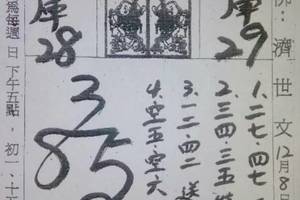 佛：濟世文
12月8日
庫
29
庫
28
1.二七.四七
2.三四.三五
3.一二.四二 送
4.空五.空六
3
8
5
為每週
日下午五點，初一、十五